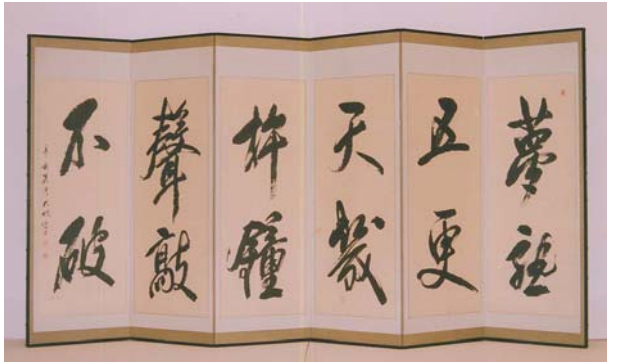 夢熟
五更
天幾
杵鐘
聲敲
不破